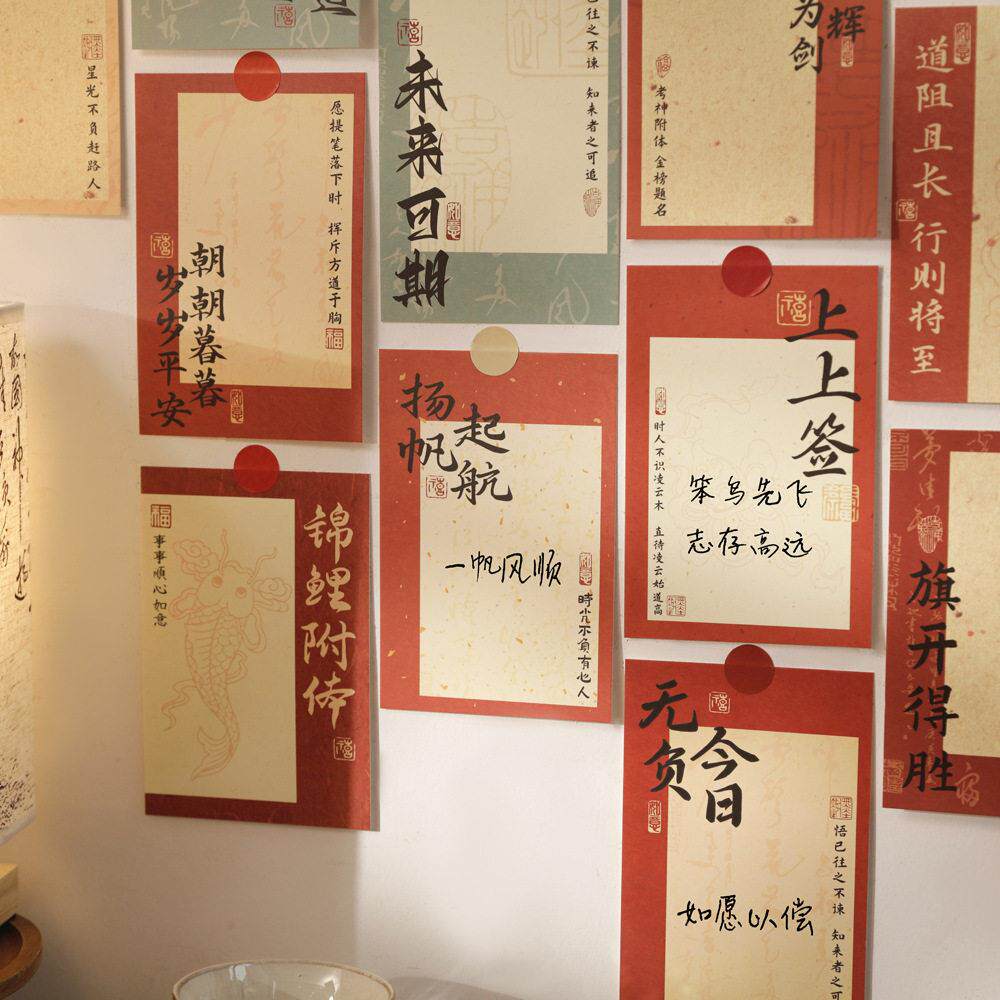 星光不负赶路人
愿提笔落下时 挥斥方遒于胸
朝朝暮暮
岁岁平安
未来可期
已往之不谏 知来者之可追
为剑
辉
考神附体 金榜题名
道阻且长 行则将至
锦鲤附体
事事顺心如意
扬帆
起航
一帆风顺
時光不负有心人
上上签
时人不识凌云木 直待凌云始道高
笨鸟先飞
志存高远
旗开得胜
无负
今日
悟已往之不谏 知来者之可
如愿以偿